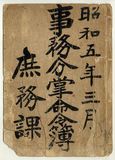 昭和五年三月
事務分掌命令簿
庶務課